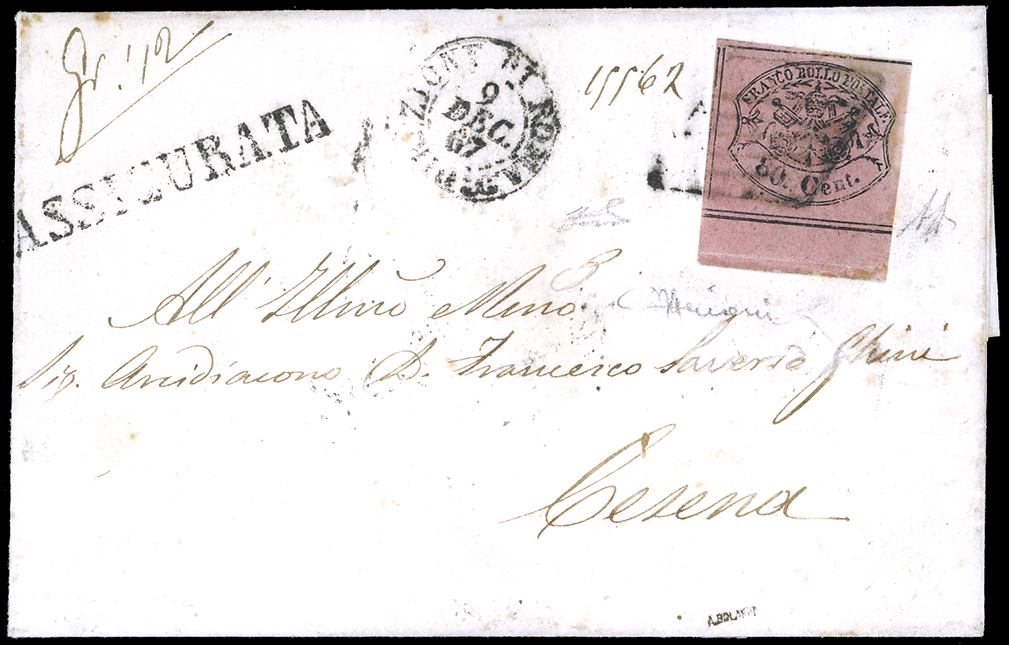 Gr. 12
ASSICURATA
DIREZIONE DI ROMA
9
DEC.
67
15562
FRANCO BOLLO POSTALE
80. Cent.
All' Illmo Mmo.
Sig. Arcidiacono D. Francesco Saverio Ghini
Cesena
A.BOLAFFI